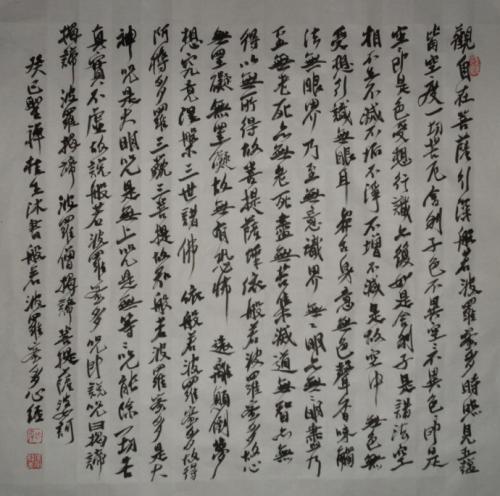 觀自在菩薩行深般若波羅蜜多時照見五蘊
皆空度一切苦厄舍利子色不異空空不異色色即是
空空即是色受想行識亦復如是舍利子是諸法空
相不生不滅不垢不淨不增不減是故空中無色無
受想行識無眼耳鼻舌身意無色聲香味觸
法無眼界乃至無意識界無無明亦無無明盡乃
至無老死亦無老死盡無苦集滅道無智亦無
得以無所得故菩提薩埵依般若波羅蜜多故心
無罣礙無罣礙故無有恐怖遠離顛倒夢
想究竟涅槃三世諸佛依般若波羅蜜多故得
阿耨多羅三藐三菩提故知般若波羅蜜多是大
神咒是大明咒是無上咒是無等等咒能除一切苦
真實不虛故說般若波羅蜜多咒即說咒曰揭諦
揭諦波羅揭諦波羅僧揭諦菩提薩婆訶
癸巳聖誕 沐書般若波羅蜜多心經